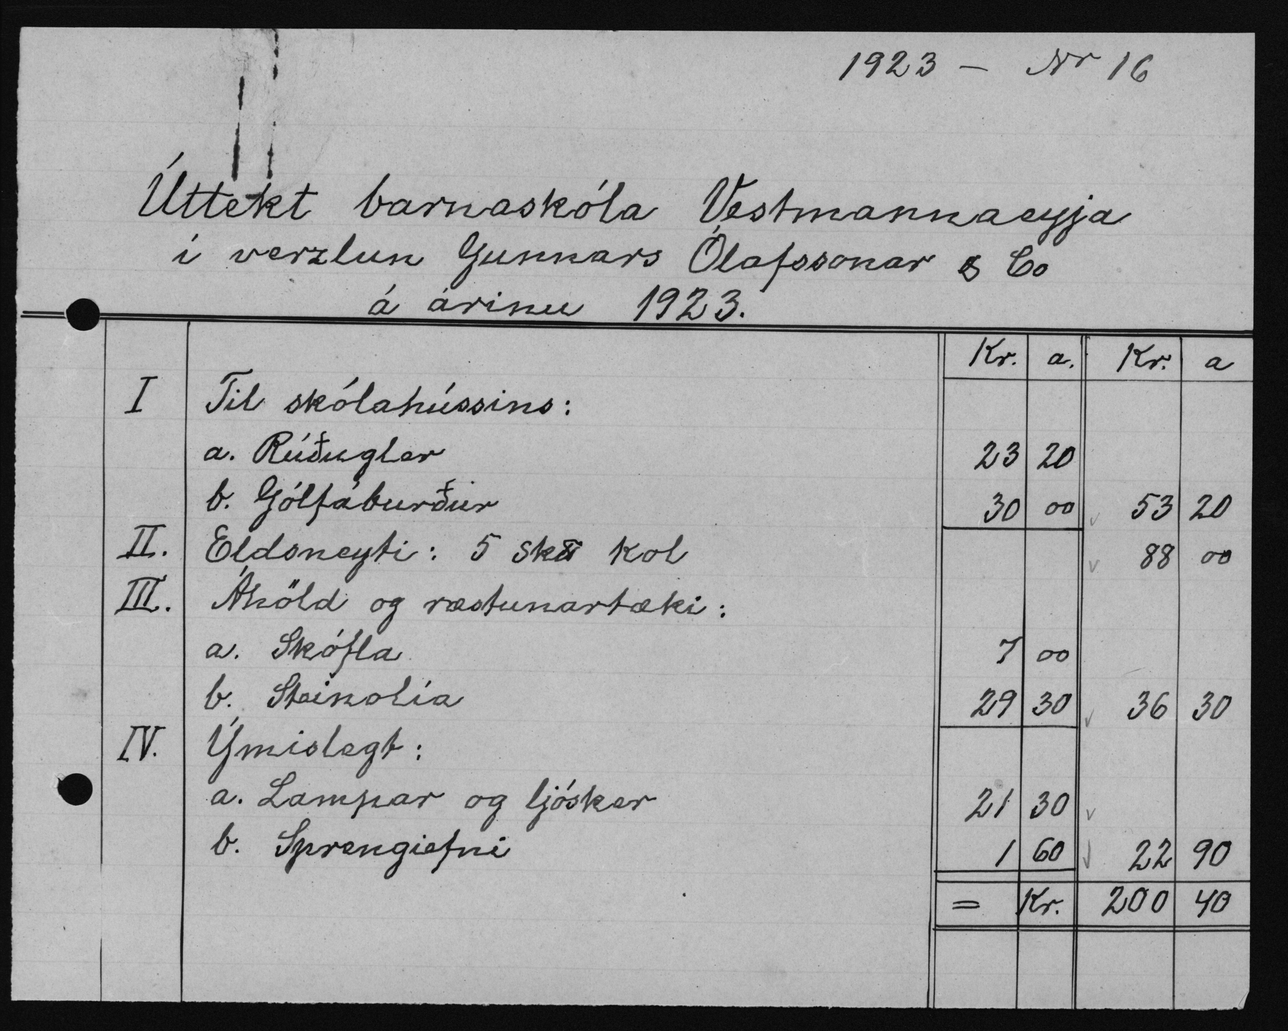 1923 — Nr 16
Úttekt barnaskóla Vestmannaeyja
í verzlun Gunnars Ólafssonar & Co
á árinu 1923.
Kr. a. Kr. a
I Til skólahússins:
a. Rúðugler 23 20
b. Gólfáburður 30 00 53 20
II. Eldsneyti: 5 sk๘ kol 88 00
III. Áhöld og ræstunartæki:
a. Skófla 7 00
b. Steinolía 29 30 36 30
IV. Ýmislegt:
a. Lampar og ljósker 21 30
b. Sprengiefni 1 60 22 90
= Kr. 200 40